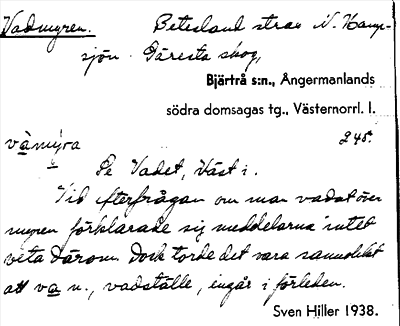 Vadmyren. Betesland strax N. Kamp-
sjön. Däresta skog,
Bjärtrå s:n., Ångermanlands
södra domsagas tg., Västernorrl. l.
vàmýra 245.
Se Vadet, Väst i.
Vid efterfrågan om man vadat över
myren förklarade sig meddelarna intet
veta därom. Dock torde det vara sannolikt
att va n., vadställe, ingår i förleden.
Sven Hiller 1938.